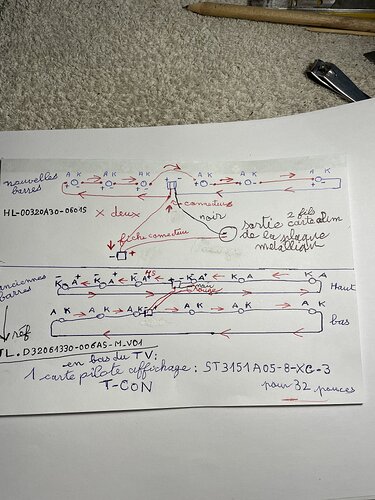 A K A K A K A K A K A K
nouvelles
barres
+ - + -
HL-00320A30-0601S x deux
connecteur
noir
2 fils
sortie carte alim
de la plaque
metallique
fiche connecteur
- +
anciennes
barres
HS
- K A + - K A + - K A + - K A + K A K A
noir
rouge
Haut
A K A K A K A K
bas
réf
JL.D32061330-006AS-M.V01
en bas du TV:
1 carte pilote affichage: ST3151A05-8-XC-3
T-CON
pour 32 pouces